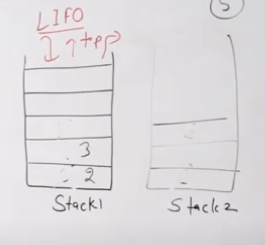 5
LIFO
↓ ↑ top
3
2
Stack1
Stack2